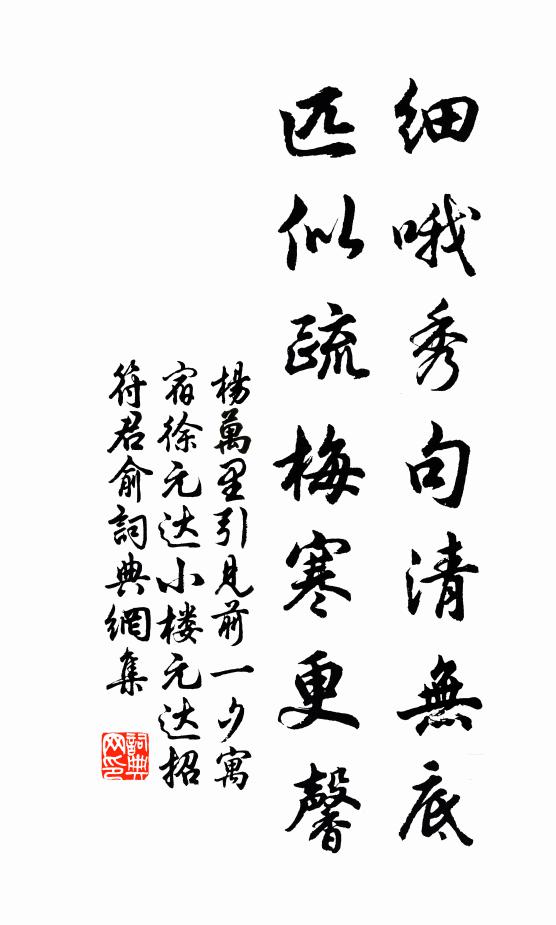 细哦秀句清無底
匹似疏梅寒更馨
楊萬里引見前一夕寓
宿徐元达小楼元达招
符君俞詞典網集
詞典
网印